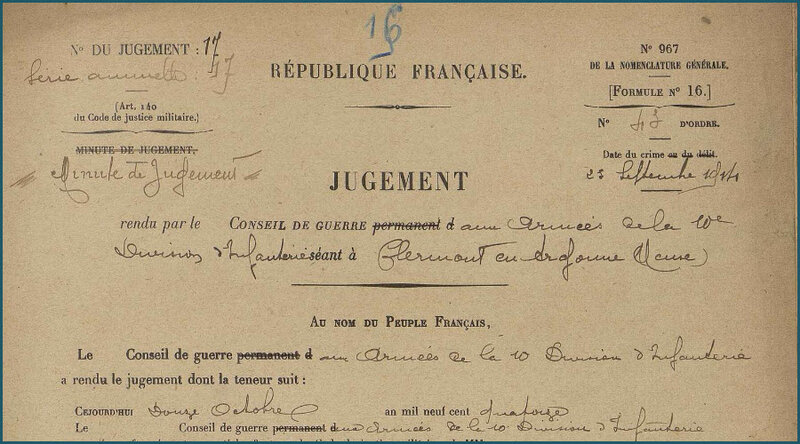 16
N° DU JUGEMENT : 17
Série annuelle : 47
(Art. 140
du Code de justice militaire.)
MINUTE DE JUGEMENT.
Minute de Jugement
RÉPUBLIQUE FRANÇAISE.
N° 967
DE LA NOMENCLATURE GÉNÉRALE.
[FORMULE N° 16.]
N° 43 D'ORDRE.
Date du crime ou du délit.
25 Septembre 1914
JUGEMENT
rendu par le CONSEIL DE GUERRE permanent d aux Armées de la 10e
Division d'Infanterie séant à Clermont en Argonne (Meuse)
AU NOM DU PEUPLE FRANÇAIS,
Le Conseil de guerre permanent d aux Armées de la 10 Division d'Infanterie
a rendu le jugement dont la teneur suit :
CEJOURD'HUI Douze Octobre an mil neuf cent quatorze
Le Conseil de guerre permanent d aux Armées de la 10e Division d'Infanterie